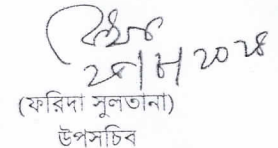 ২০২৪
(ফরিদা সুলতানা)
উপসচিব